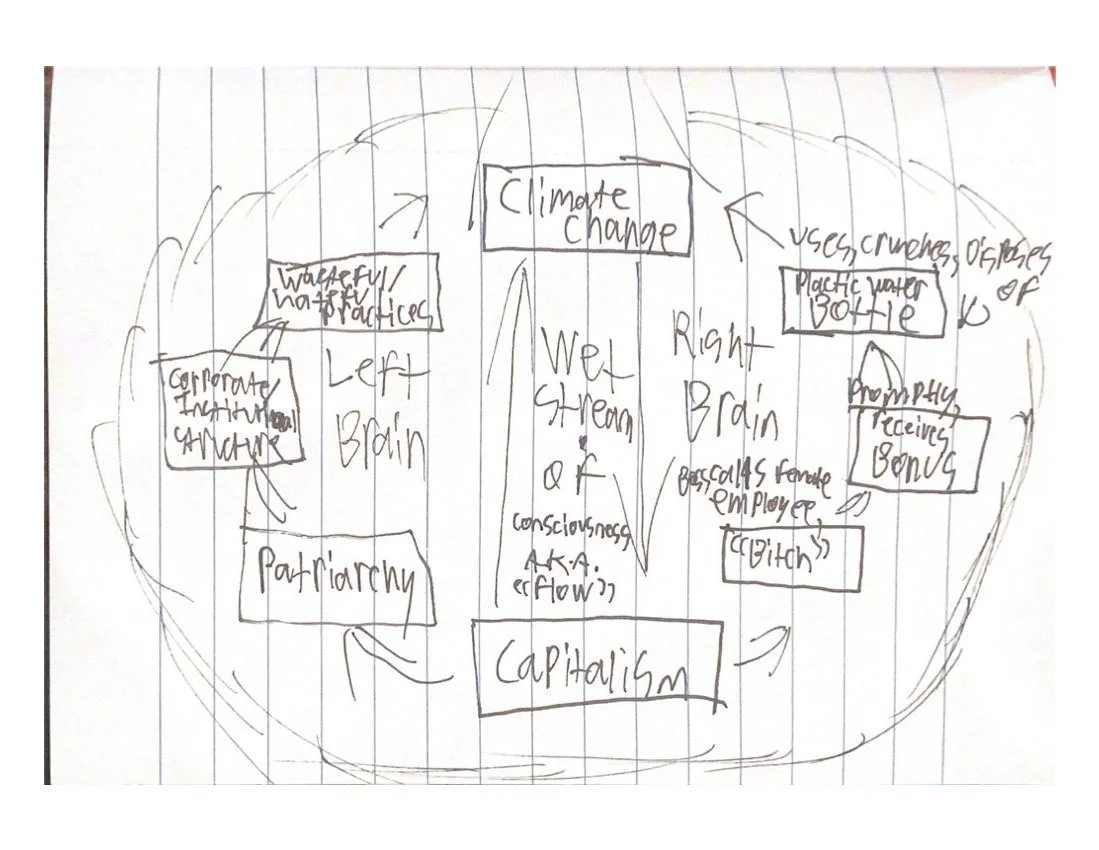 Climate
Change
Wasteful/
hateful
practices
Corporate/
Institutional
structure
Left
Brain
Patriarchy
Capitalism
Wet
Stream
of
consciousness
A.K.A.
"flow"
Right
Brain
Boss calls female
employee
"Bitch"
Promptly
receives
Bonus
Plastic water
Bottle
uses, crunches, Disposes
of